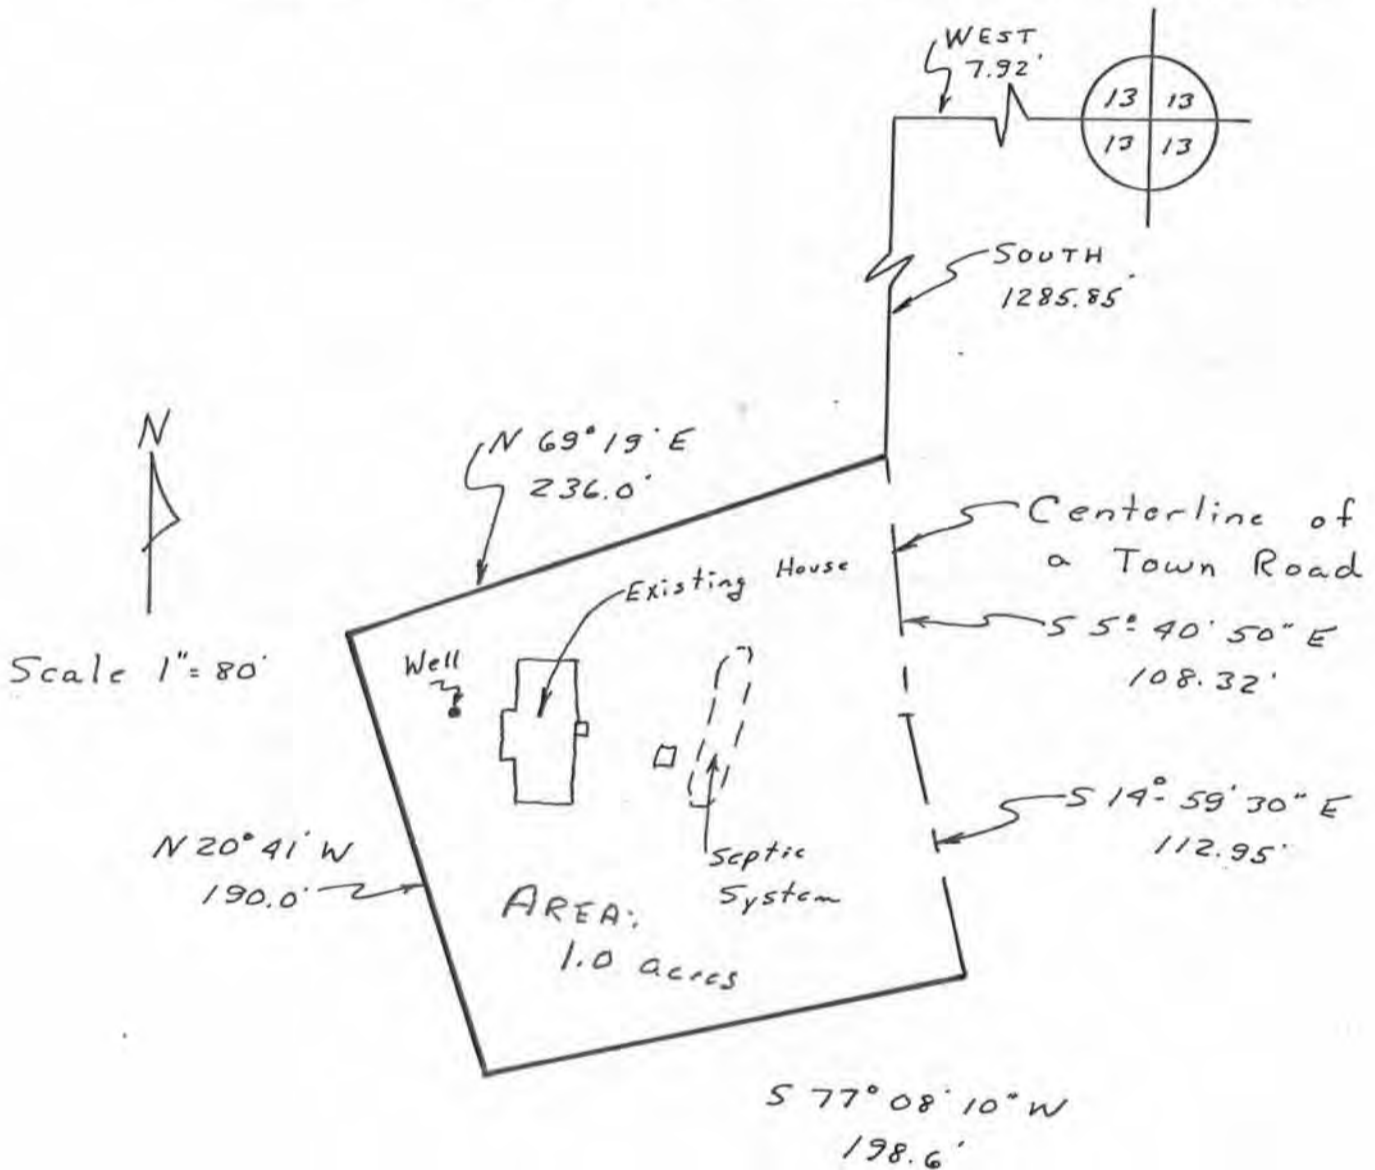 WEST
7.92'
13 13
13 13
SOUTH
1285.85'
N
N 69° 19' E
236.0'
Centerline of
a Town Road
Existing House
S 5° 40' 50" E
108.32'
Scale 1" = 80'
Well
S 14° 59' 30" E
112.95'
N 20° 41' W
190.0'
Septic
System
AREA:
1.0 acres
S 77° 08' 10" W
198.6'